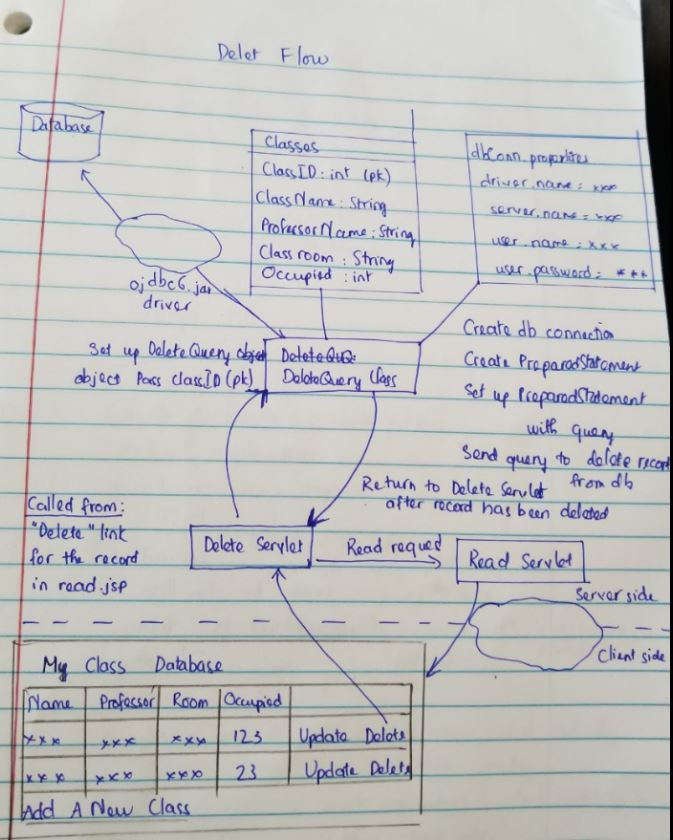 Delet Flow
Database
Classes
ClassID: int (pk)
ClassName: String
ProfessorName: String
Classroom: String
Occupied: int
dbConn.properties
driver.name: xxx
server.name: xxx
user.name: xxx
user.password: ***
ojdbc6.jar
driver
Set up DeleteQuery object
object Pass classID (pk)
DeleteQuery Class
Create db connection
Create PreparedStatement
Set up PreparedStatement
with query
Send query to delete record
from db
Return to Delete Servlet
after record has been deleted
Called from:
"Delete" link
for the record
in read.jsp
Delete Servlet
Read request
Read Servlet
Server side
Client side
My Class Database
Name Professor Room Occupied
xxx xxx xxx 123 Update Delete
xxx xxx xxx 23 Update Delete
Add A New Class